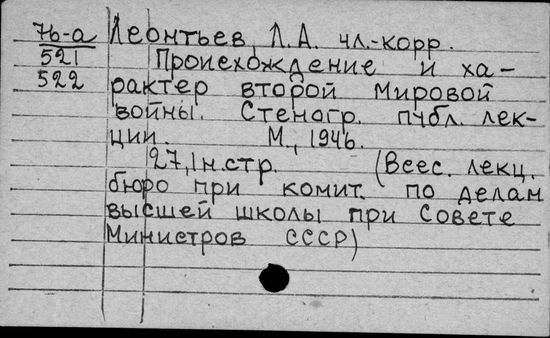 76-а Леонтьев, Л.А. чл.-корр.
521 Происхождение и ха-
522 рактер второй мировой
войны. Стеногр. публ. лек-
ции. М., 1946.
27,1н.стр. (Всес. лекц.
бюро при комит. по делам
высшей школы при Совете
Министров СССР)